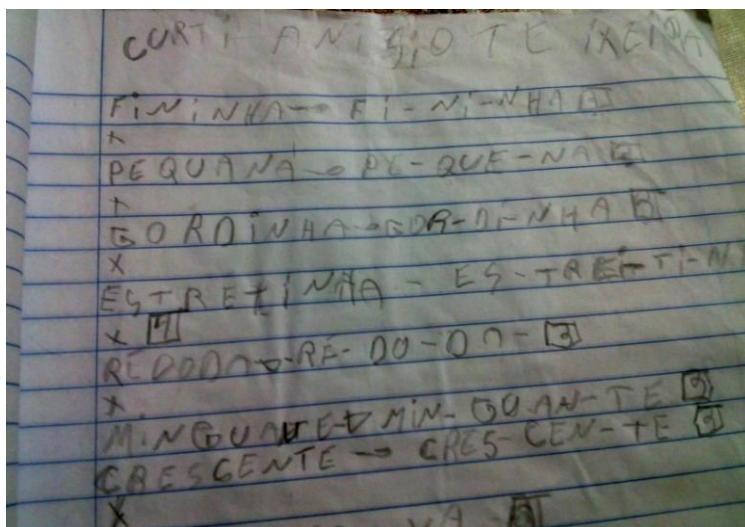 CURTI- ANISIO TEIXEIRA
FININHA → FI-NI-NHA 3
X
PEQUANA → PE-QUE-NA 3
X
GORDINHA → GOR-DI-NHA 3
X
ESTRETINHA - ES-TREI-TI-N
X 4
REDODA → RE-DO-DA- 3
X
MINGUANTE → MIN-GUAN-TE 3
CRESCENTE → CRES-CEN-TE 3
X
VA 3